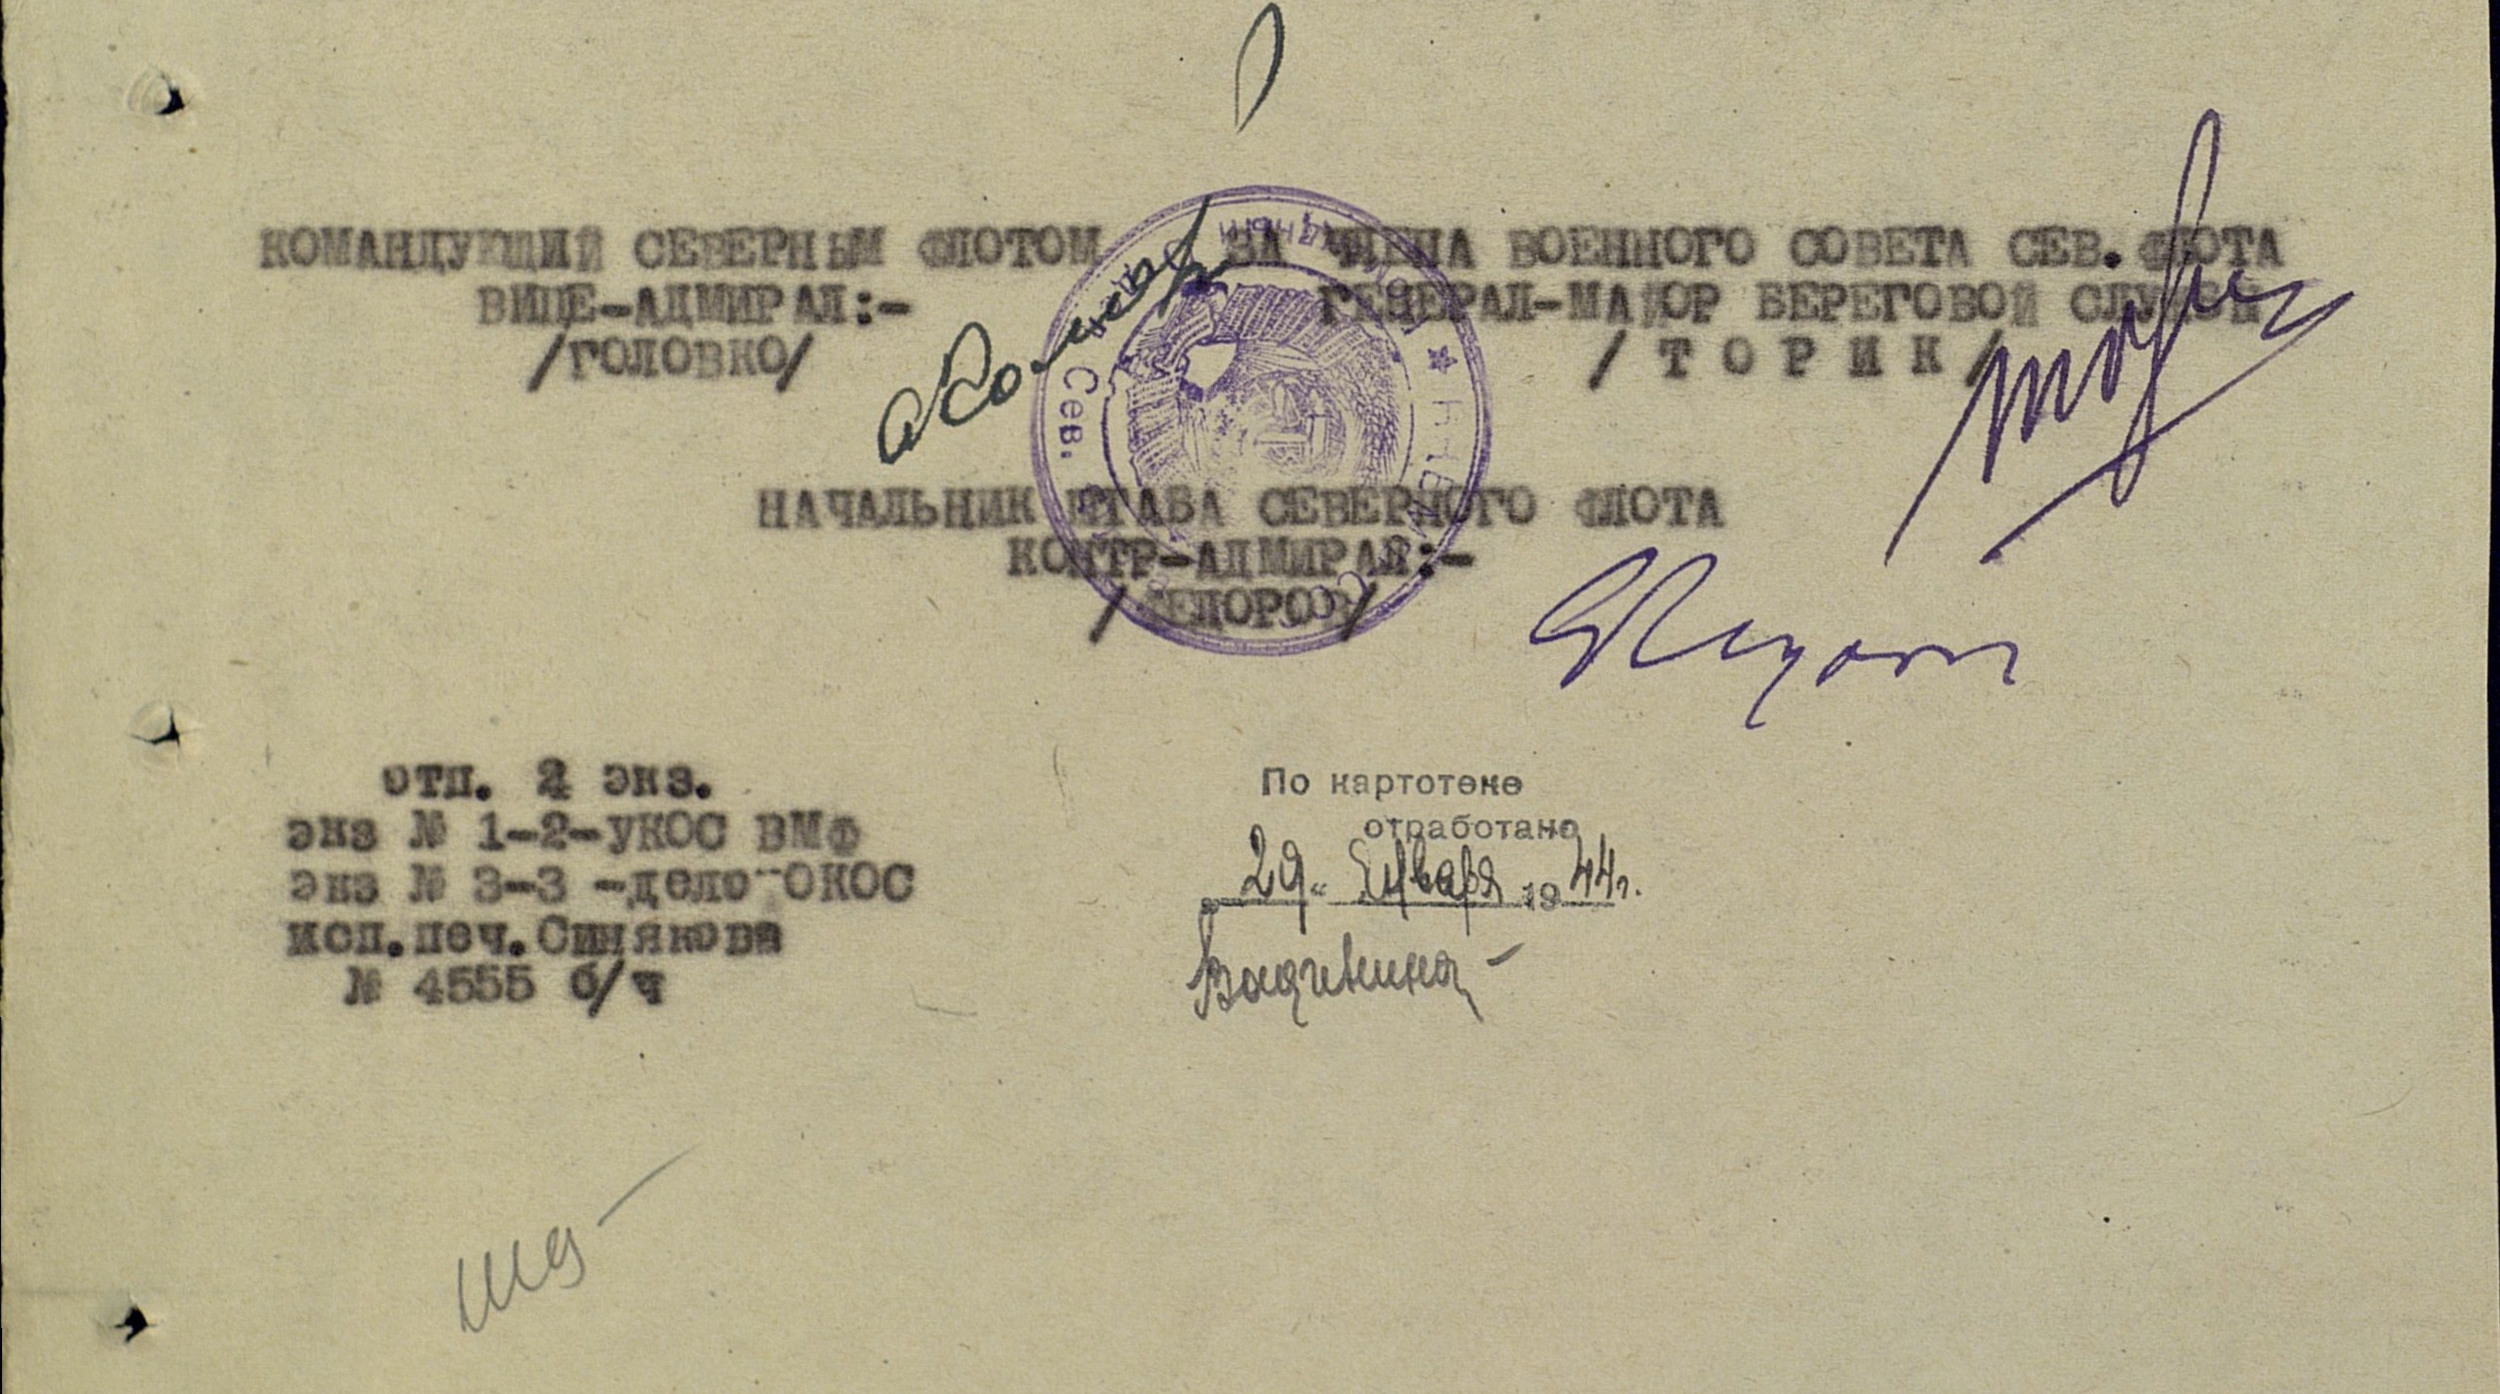 КОМАНДУЮЩИЙ СЕВЕРНЫМ ФЛОТОМ
ВИЦЕ-АДМИРАЛ:-
/ГОЛОВКО/
ЗА ЧЛЕНА ВОЕННОГО СОВЕТА СЕВ. ФЛОТА
ГЕНЕРАЛ-МАЙОР БЕРЕГОВОЙ СЛУЖБЫ
/ Т О Р И К /
Сев.
НАЧАЛЬНИК ШТАБА СЕВЕРНОГО ФЛОТА
КОНТР-АДМИРАЛ:-
/ФЕДОРОВ/
отп. экз.
экз № 1-2-УКОС ВМФ
экз № 3-3 -дело ОКОС
исп.печ.Синякова
№ 4555 б/ч
По картотеке
отработано
29" Января 1944г.